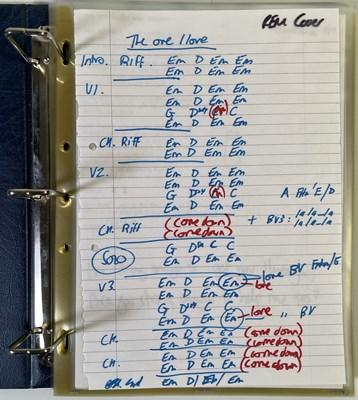 REM Cover
The one I love
Intro. Riff. Em D Em Em
Em D Em Em
V1. Em D Em Em
Em D Em Em
G D Em C
Em D Em Em
CH. Riff Em D Em Em
Em D Em Em
V2. Em D Em Em
Em D Em Em
G D C
Em D Em Em
CH. Riff (come down) + BVs: la/la-la
(come down) la/la-la
Solo G D C C
Em D Em Em
V3 Em D Em Em love BV
Em D Em Em
G D C
Em D Em Em love " BV
CH. Em D Em Em (come down)
Em D Em Em (come down)
CH. Em D Em Em (come down)
Em D Em Em (come down)
End Em D Em